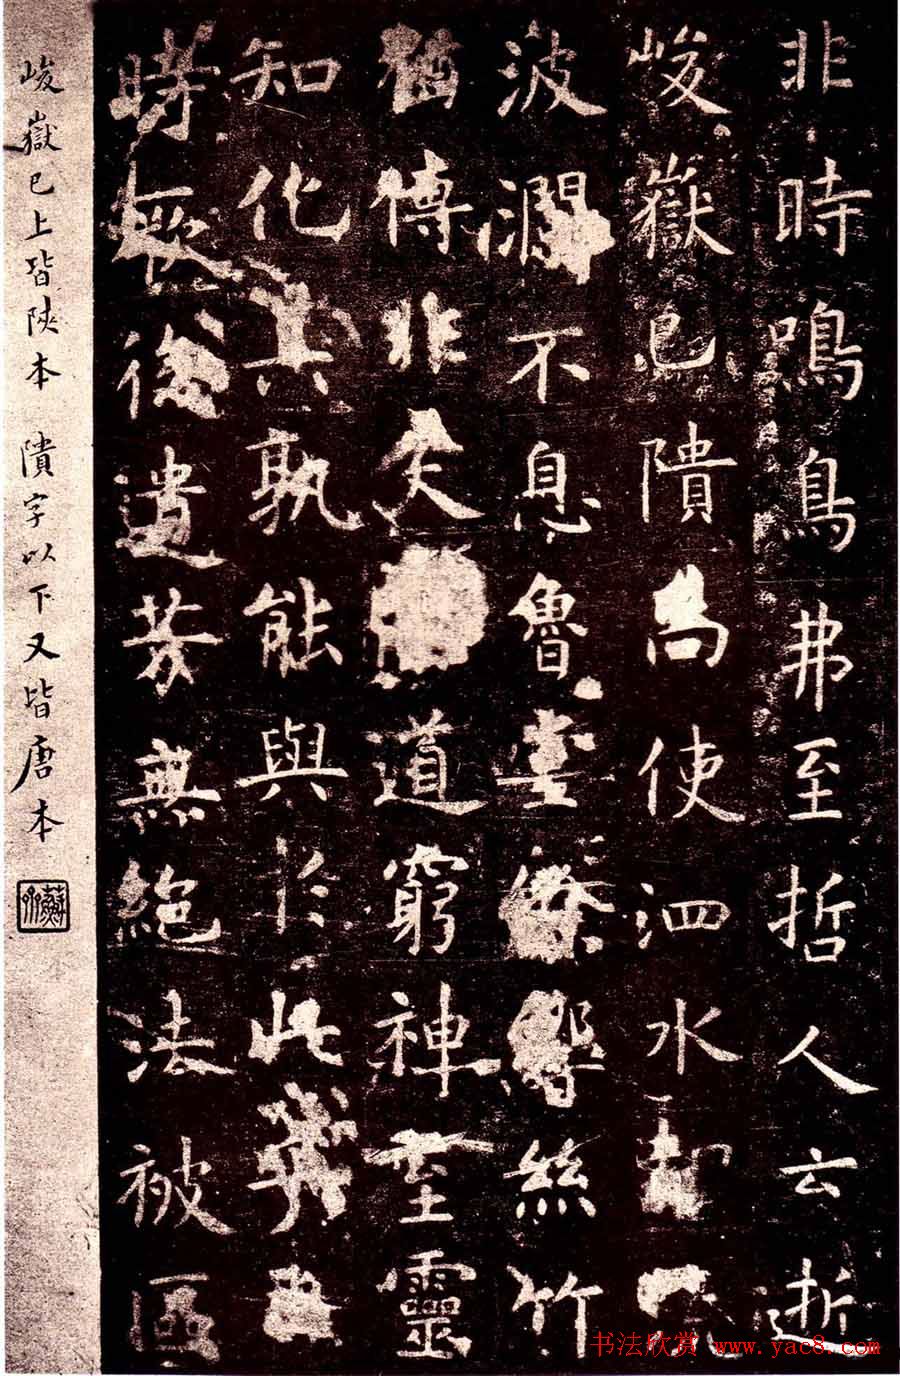 非時鳴鳥弗至哲人云逝
峻嶽已隤尚使泗水却
波瀾不息魯堂餘響絲竹
猶傳非夫道窮神至靈
知化其孰能與於此乎自
時厥後遺芳無絕法被區
峻嶽已上皆陝本 隤字以下又皆唐本
书法欣赏 www.yac8.com